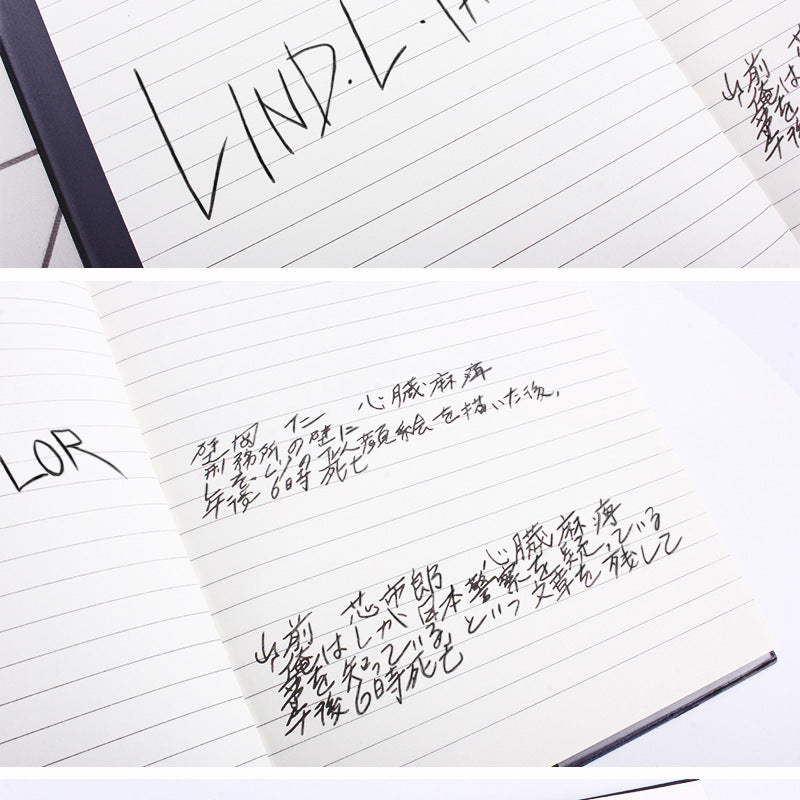 LIND.L.
山前
俺は
LOR
岡 仁 心臓麻痺
刑務所の壁に
顔絵を描いた後、
午後6時死亡
山前 芯市郎 心臓麻痺
俺はしが日本警察を疑っている
事を知っている, という文章を残して
午後6時死亡